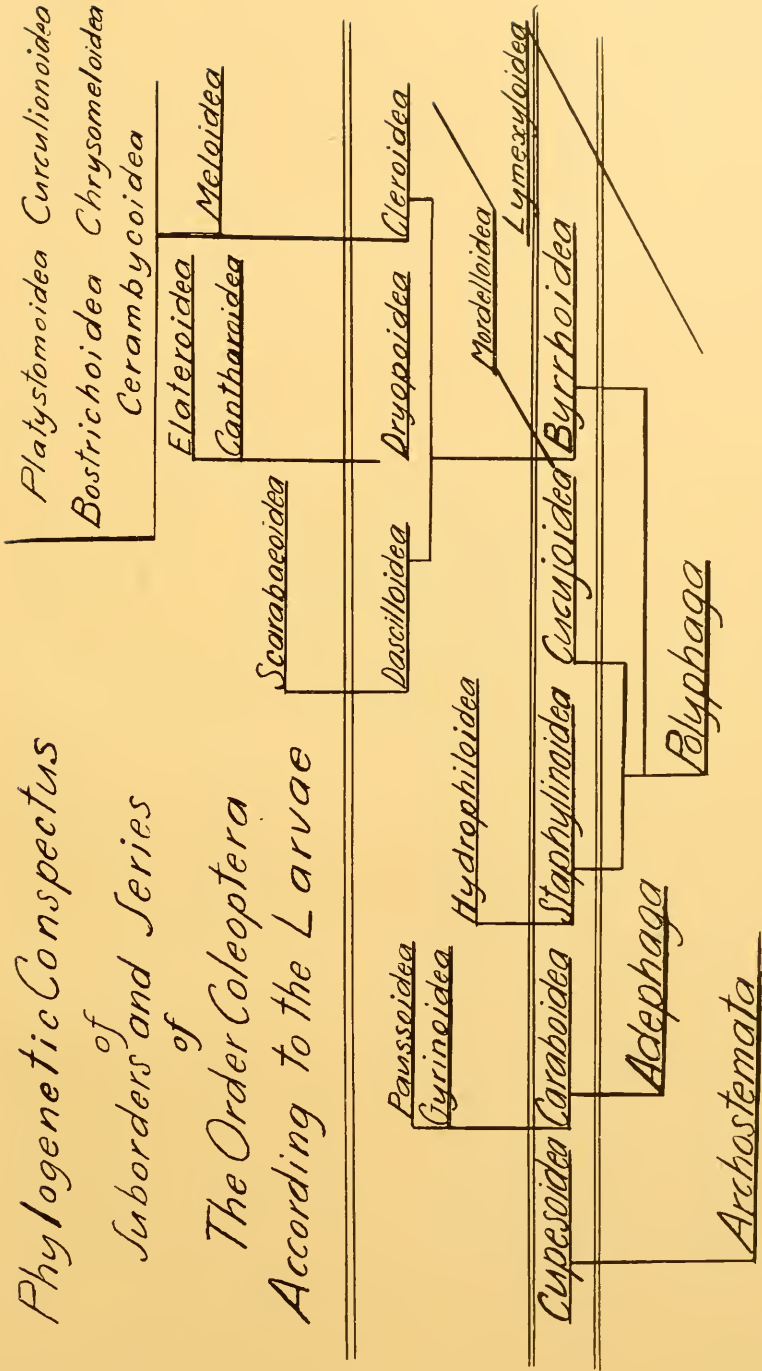 Phylogenetic Conspectus
of
Suborders and Series
of
The Order Coleoptera
According to the Larvae
Platystomoidea Curculionoidea
Bostrichoidea Chrysomeloidea
Cerambycoidea
Meloidea
Elateroidea
Cantharoidea
Scarabaeoidea
Dascilloidea
Dryopoidea
Cleroidea
Paussoidea
Gyrinoidea
Hydrophiloidea
Mordelloidea
Lymexyloidea
Cupesoidea
Caraboidea
Staphylinoidea
Cucujoidea
Byrrhoidea
Adephaga
Polyphaga
Archostemata